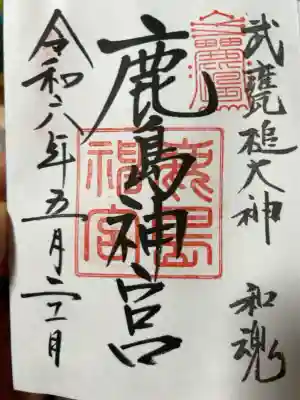 武甕槌大神 和魂
鹿島神宮
鹿島神宮
令和六年五月